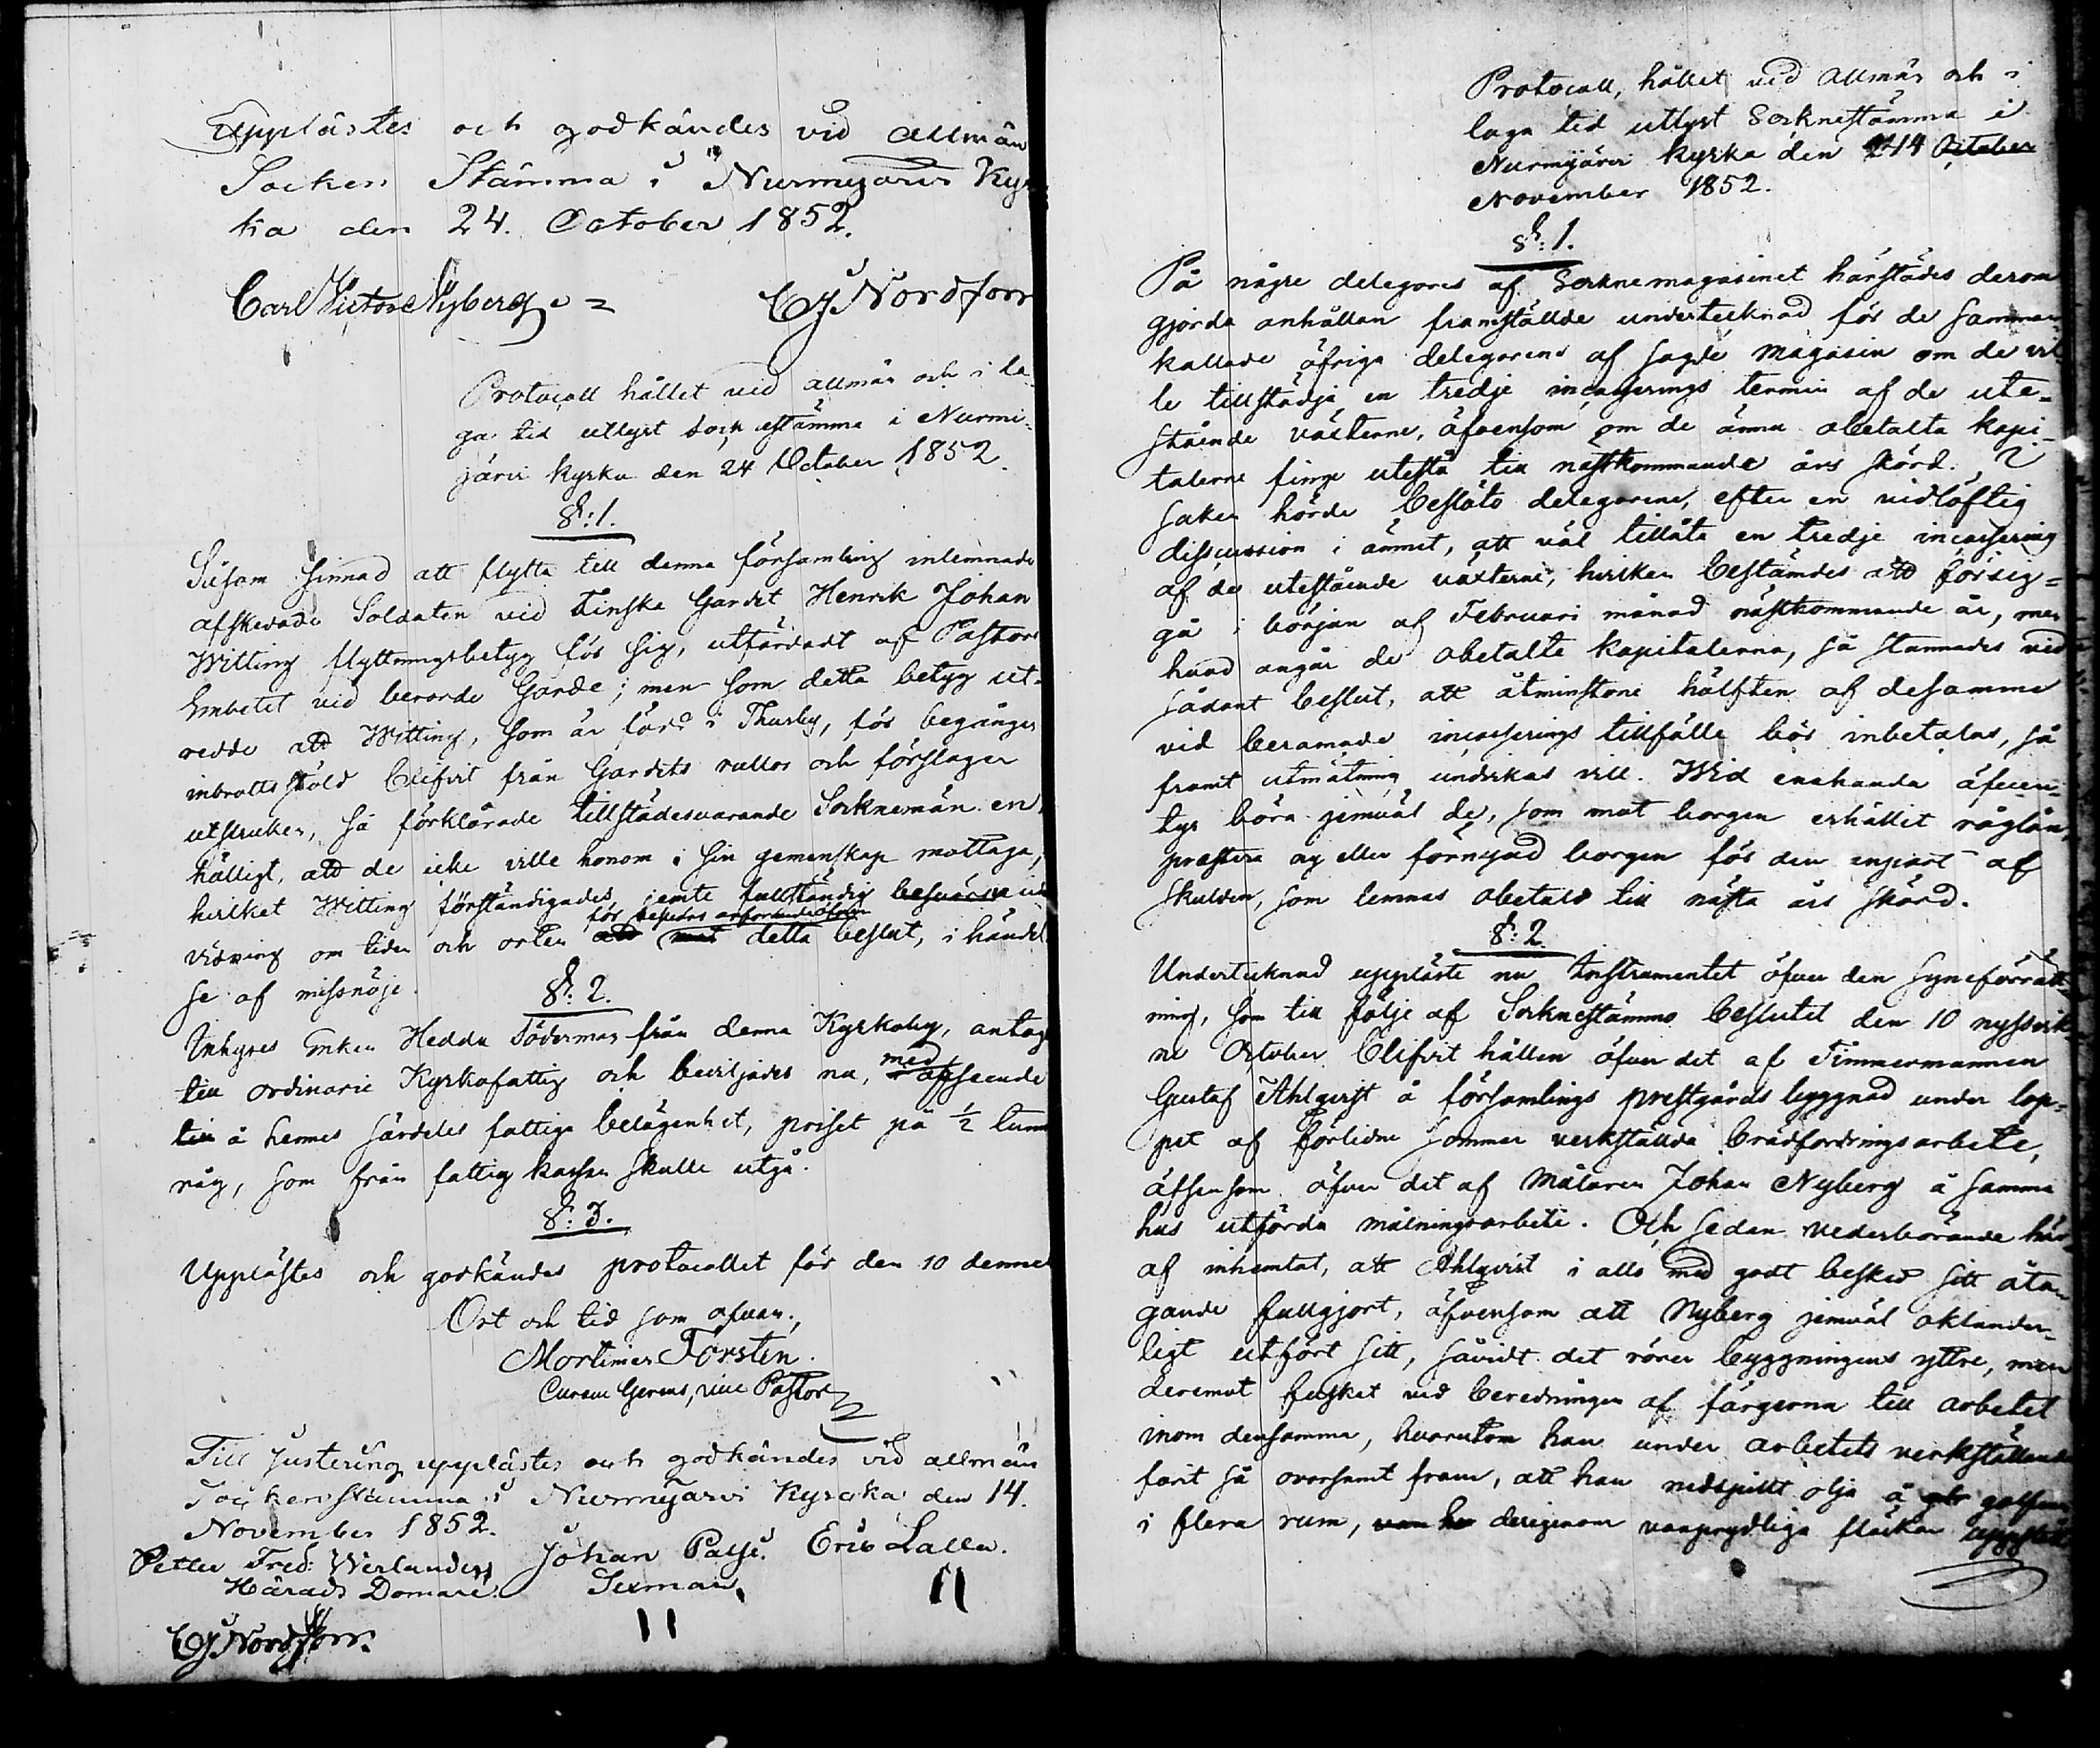 Upplästes och godkändes vid allmän
Socken Stämma i Nurmijärvi Kyr
ka den 24. October 1852.
Carl Victor Nyberg CJ Nordforr
Protocoll hållet vid allmän och i la-
ga tid utlyst Sockenstämma i Nurmi-
järvi kyrka den 24 October 1852.
§: 1.
Såsom sinnad att flytta till denna församling inlemnade
afskedade Soldaten vid Finska Gardet Henrik Johan
Witting flyttningsbetyg för sig, utfärdadt af Pastors
Embetet vid berörde Garde; men som detta betyg ut-
redde att Witting, som är född i Thusby, för begånget
inbrottsstöld blifvit från Gardets rullor och förslager
utstruken, så förklarade tillstädesvarande Socknemän en-
hälligt, att de icke ville honom i sin gemenskap mottaga,
hvilket Witting förständigades, jemte fullständig besvärs un
för besvärs anförande öfver
visning om tiden och orten att mot detta beslut, i händel
se af missnöje.
§: 2.
Inhyses Enkan Hedda Söderman från denna Kyrkoby, antogs
till ordinarie Kyrkofattig och beviljades nu, med afseende
till å hennes särdeles fattiga belägenhet, priset på 1/2 tunn
råg, som från fattig kassan skulle utgå.
§: 3.
Upplästes och godkändes protocollet för den 10 dennes
Ort och tid som ofvan.,
Mortimer Forstén.
Curam Gerens, vice Pastor
Till Justering upplästes och godkändes vid allmän
Sockenstämma i Nurmijärvi Kyrcka den 14.
November 1852.
Petter Fred: Werlander, Johan Palje. Eric Lalla.
Härads Domare. Sexman,
CJ Nordforr.
Protocoll, hållet vid allmän och i
laga tid utlyst Socknestämma i
Nurmijärvi kyrka den 14 October
November 1852.
§: 1.
På någre delegares af Socknemagasinet härstädes derom
gjorda anhållan framställde undertecknad för de samman-
kallade öfriga delegarena af sagde magasin om de vil
le tillstädja en tredje incasserings termin af de ute-
stående växterne, äfvensom om de ännu obetalta kapi-
talerne finge utestå till nästkommande års skörd. I
saken hörde beslöto delegarene, efter en vidlöftig
discussion i ämnet, att väl tillåta en tredje incassering
af de utestående växterne, hvilken bestämdes att försig-
gå i början af Februari månad nästkommande år, men
hvad angår de obetalte kapitalerna, så stannades vid
sådant beslut, att åtminstone hälften af desamma
vid beramade incasserings tillfälle bör inbetalas, så
framt utmätning undvikas vill. Wid enahanda äfven-
tyr böra jemväl de, som mot borgen erhållit råglån,
præstera ny eller förnyad borgen för den enpart af
skulden, som lemnas obetald till nästa års skörd.
§: 2.
Undertecknad uppläste nu Instrumentet öfver den Syneförrätt-
ning, som till följe af Socknestämmo beslutet den 10 nyssvik-
ne October blifvit hållen öfver det af Timmermannen
Gustaf Ahlqvist å församlings prestgårds byggnad under lop-
pet af förlidne sommar verkställda brädfordringsarbete,
äfvensom öfver det af Målaren Johan Nyberg å samma
hus utförda målningsarbete. Och sedan vederbörande här-
af inhemtat, att Ahlqvist i allo med godt besked sitt åta-
gande fullgjort, äfvensom att Nyberg jemväl oklander-
ligt utfört sitt, såvidt det rörer byggningens yttre, men
deremot fuskat vid beredningen af färgerna till arbetet
inom densamma, hvarutom han under arbetets verkställande
farit så ovarsamt fram, att han nedspillt olja å golfven
i flera rum, deriginom vanprydliga fläckar uppstått